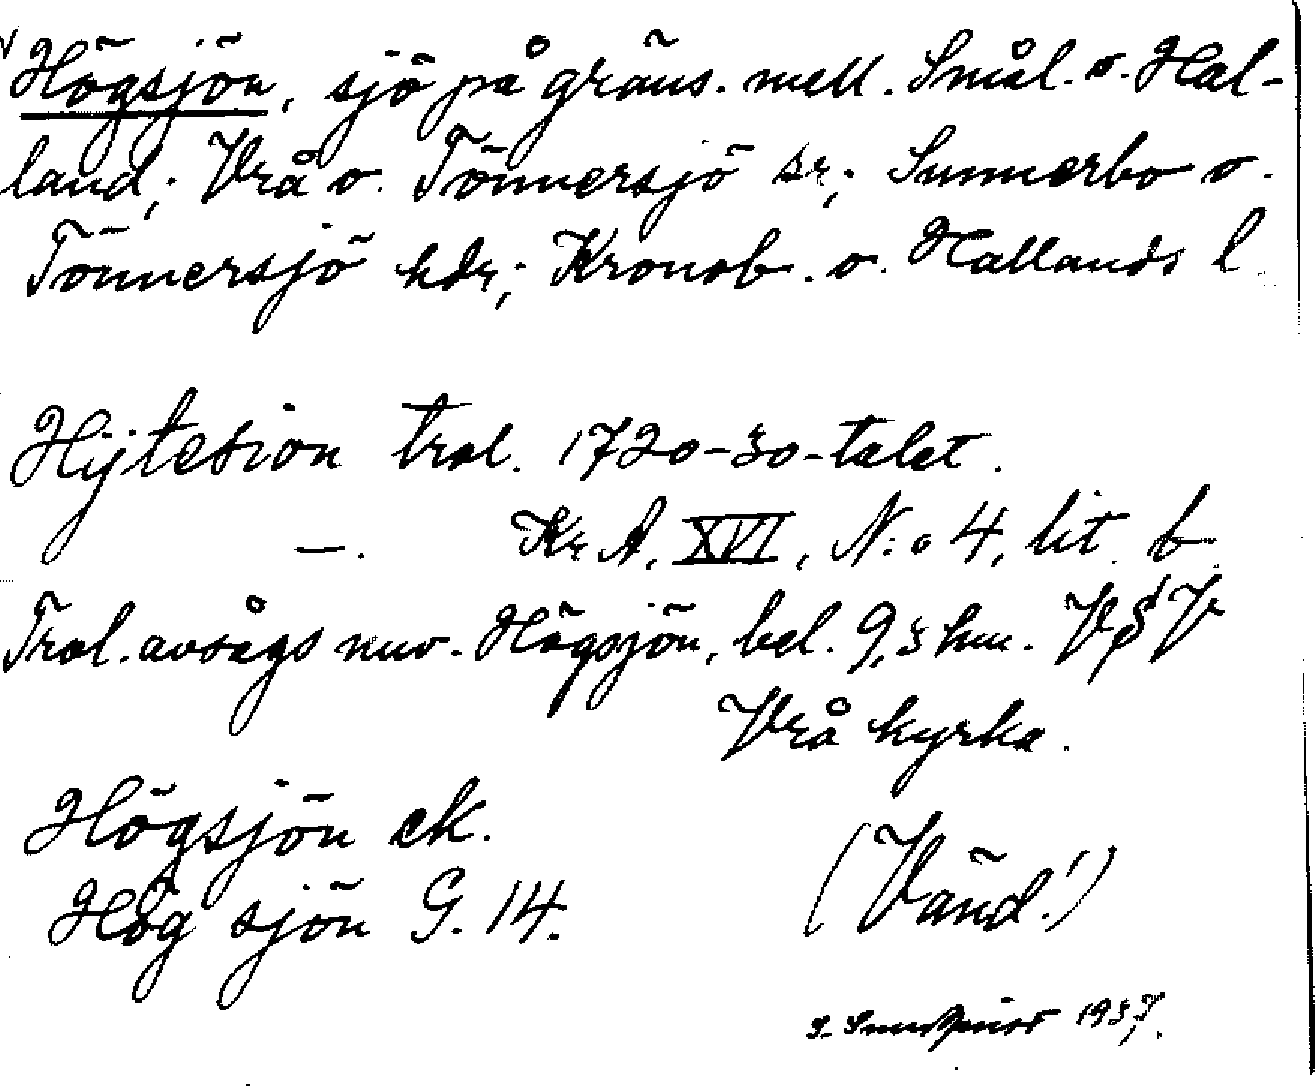 Högsjön, sjö på gräns. mell. Smål. o. Hal-
land; Vrå o. Tönnersjö sr; Sunnerbo o.
Tönnersjö hdr; Kronob. o. Hallands l.
Hijtesion trol. 1720-30-talet.
—. Kr A. XVI, N:o 4, lit. b
Trol. avsågs nuv. Högsjön, bel. 9,3 km. V
Vrå kyrka.
Högsjön ek.
Hög sjön G. 14.
(Vänd!)
1937.